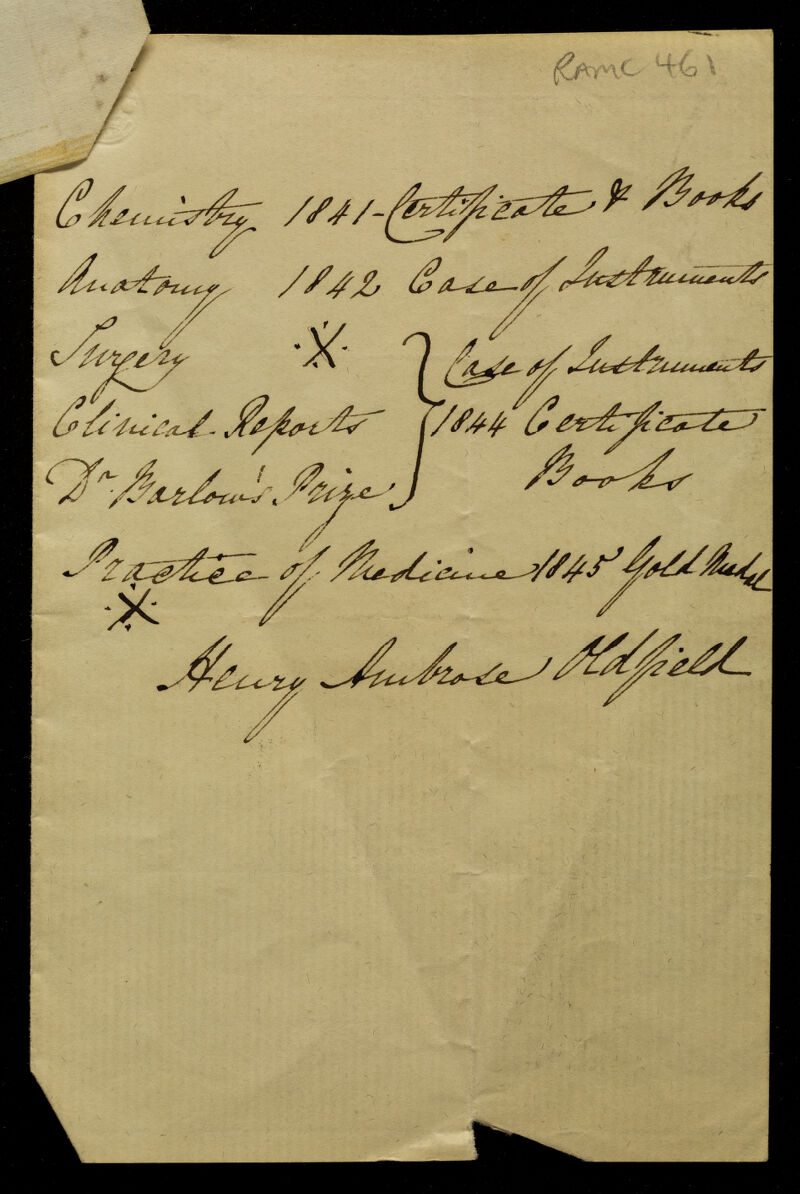 RAMC 461
Chemistry 1841 - Certificate & Books
Anatomy 1842 Case of Instruments
Surgery ·X· } Case of Instruments
Clinical Reports } 1844 Certificate
Dr. Barlow's Prize } Books
Practice of Medicine 1845 Gold Medal
·X·
Henry Ambrose Oldfield